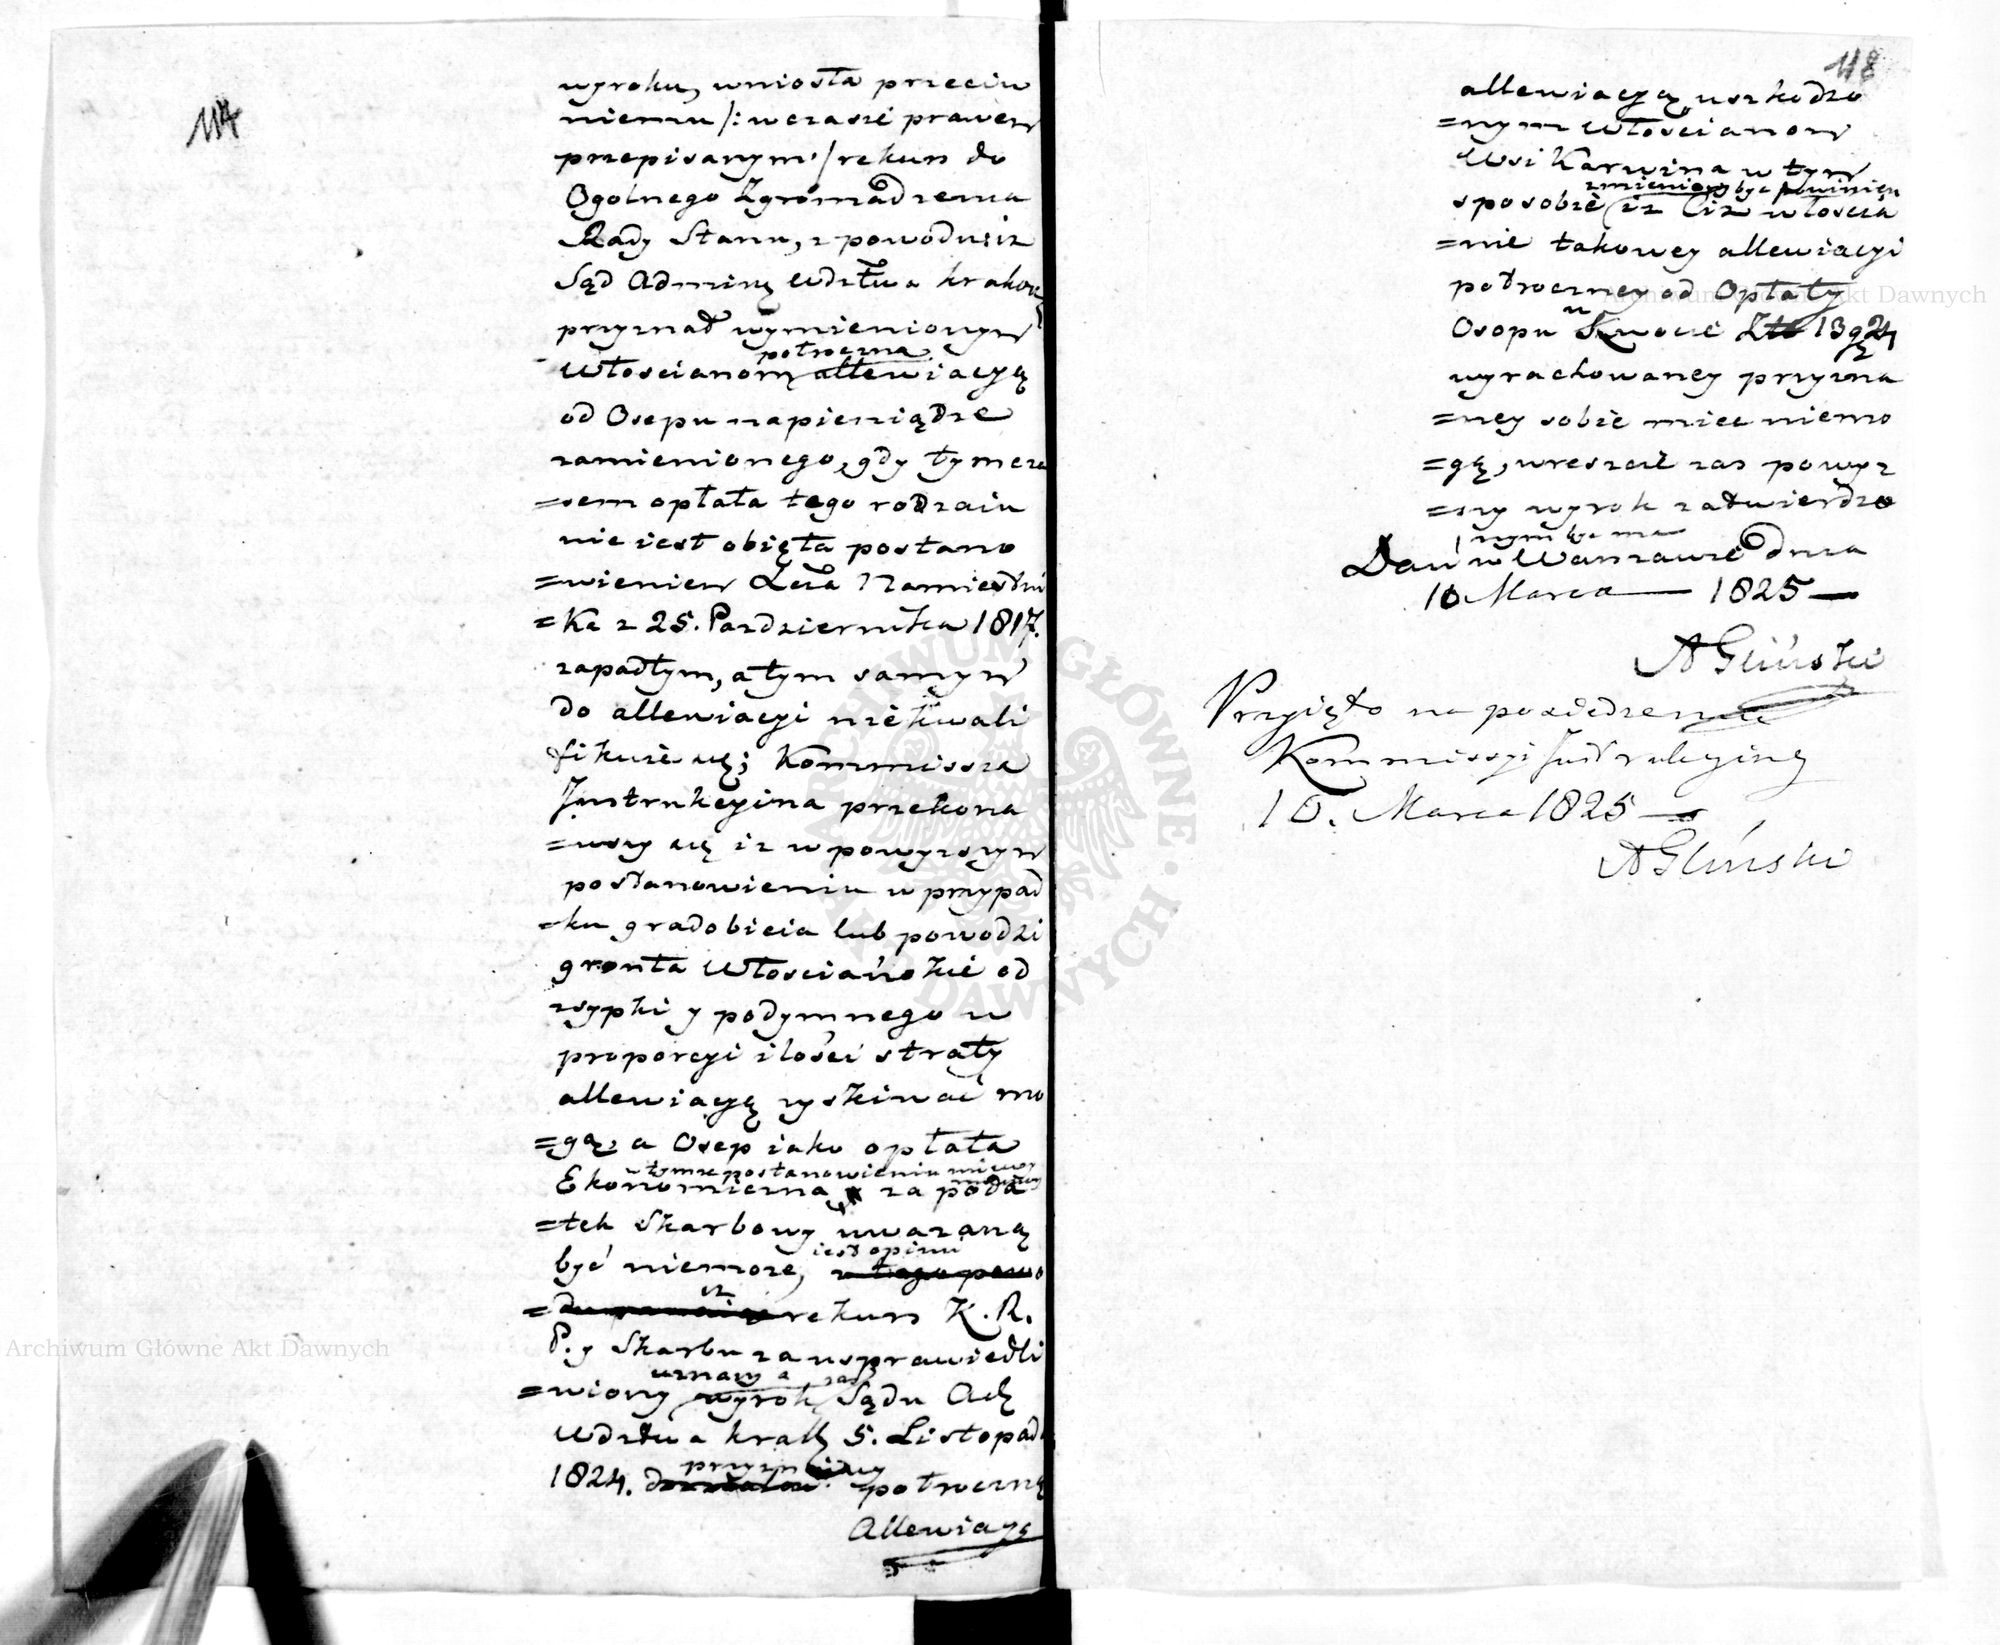 114
wyroku, wniosła przeciw
niemu /: w czasie prawem
przepisanym :/ rekurs do
Ogolnego Zgromadzenia
Rady Stanu, z powodu iż
Sąd Adminy Wdztwa krakow
przyznał wymienionym
półroczną
Włoscianom allewiacyą
od Osepu na pieniądze
zamienionego, gdy tymcza
=sem opłata tego rodzaiu
nie iest obięta postano
=wieniem Xcia Namiestni
=ka z 25. Pazdziernika 1817.
zapadłym, a tym samym
do allewiacyi nie kwali
fikuie się; Kommissia
Instrukcyina przekona
=wszy się iż w powyzszym
postanowieniu w przypad
=ku gradobicia lub powodzi
gronta Włosciańskie od
zsypki y podymnego w
proporcyi ilości straty
allewiacyę zyskiwać mo
=gą, a Osep iako opłata
w tymze postanowieniu
Ekonomiczna za poda
=tek Skarbowy uwazaną
iest opinii
być niemoze, z tego powo
iz
=du rekurs K. R.
P. y Skarbu za usprawiedli
uznany a zas
=wiony wyrok Sądu Ad
Wdztwa krak 5. Listopada
1824. półroczną
Allewiacyę
118
allewiacyą uszkodzo
=nym Włoscianom
Wsi Karwina w tym
zmieniony być powinien
sposobie iz Ciz włoscia
=nie takowey allewiacyi
połroczney od Opłaty
w
Osopu Kwocie Zło 13 g 24
wyrachowaney przyzna
=ney sobie miec niemo
=gą, wreszcie zas powyz
=szy wyrok zatwierdzo
nym być ma
Dan w Warszawie dnia
10 Marca 1825
A Gliński
Przyięto na posiedzeniu
Kommissyi Instrukcyiney
10. Marca 1825
A Gliński
Archiwum Główne Akt Dawnych
Archiwum Główne Akt Dawnych
ARCHIWUM GŁÓWNE AKT DAWNYCH